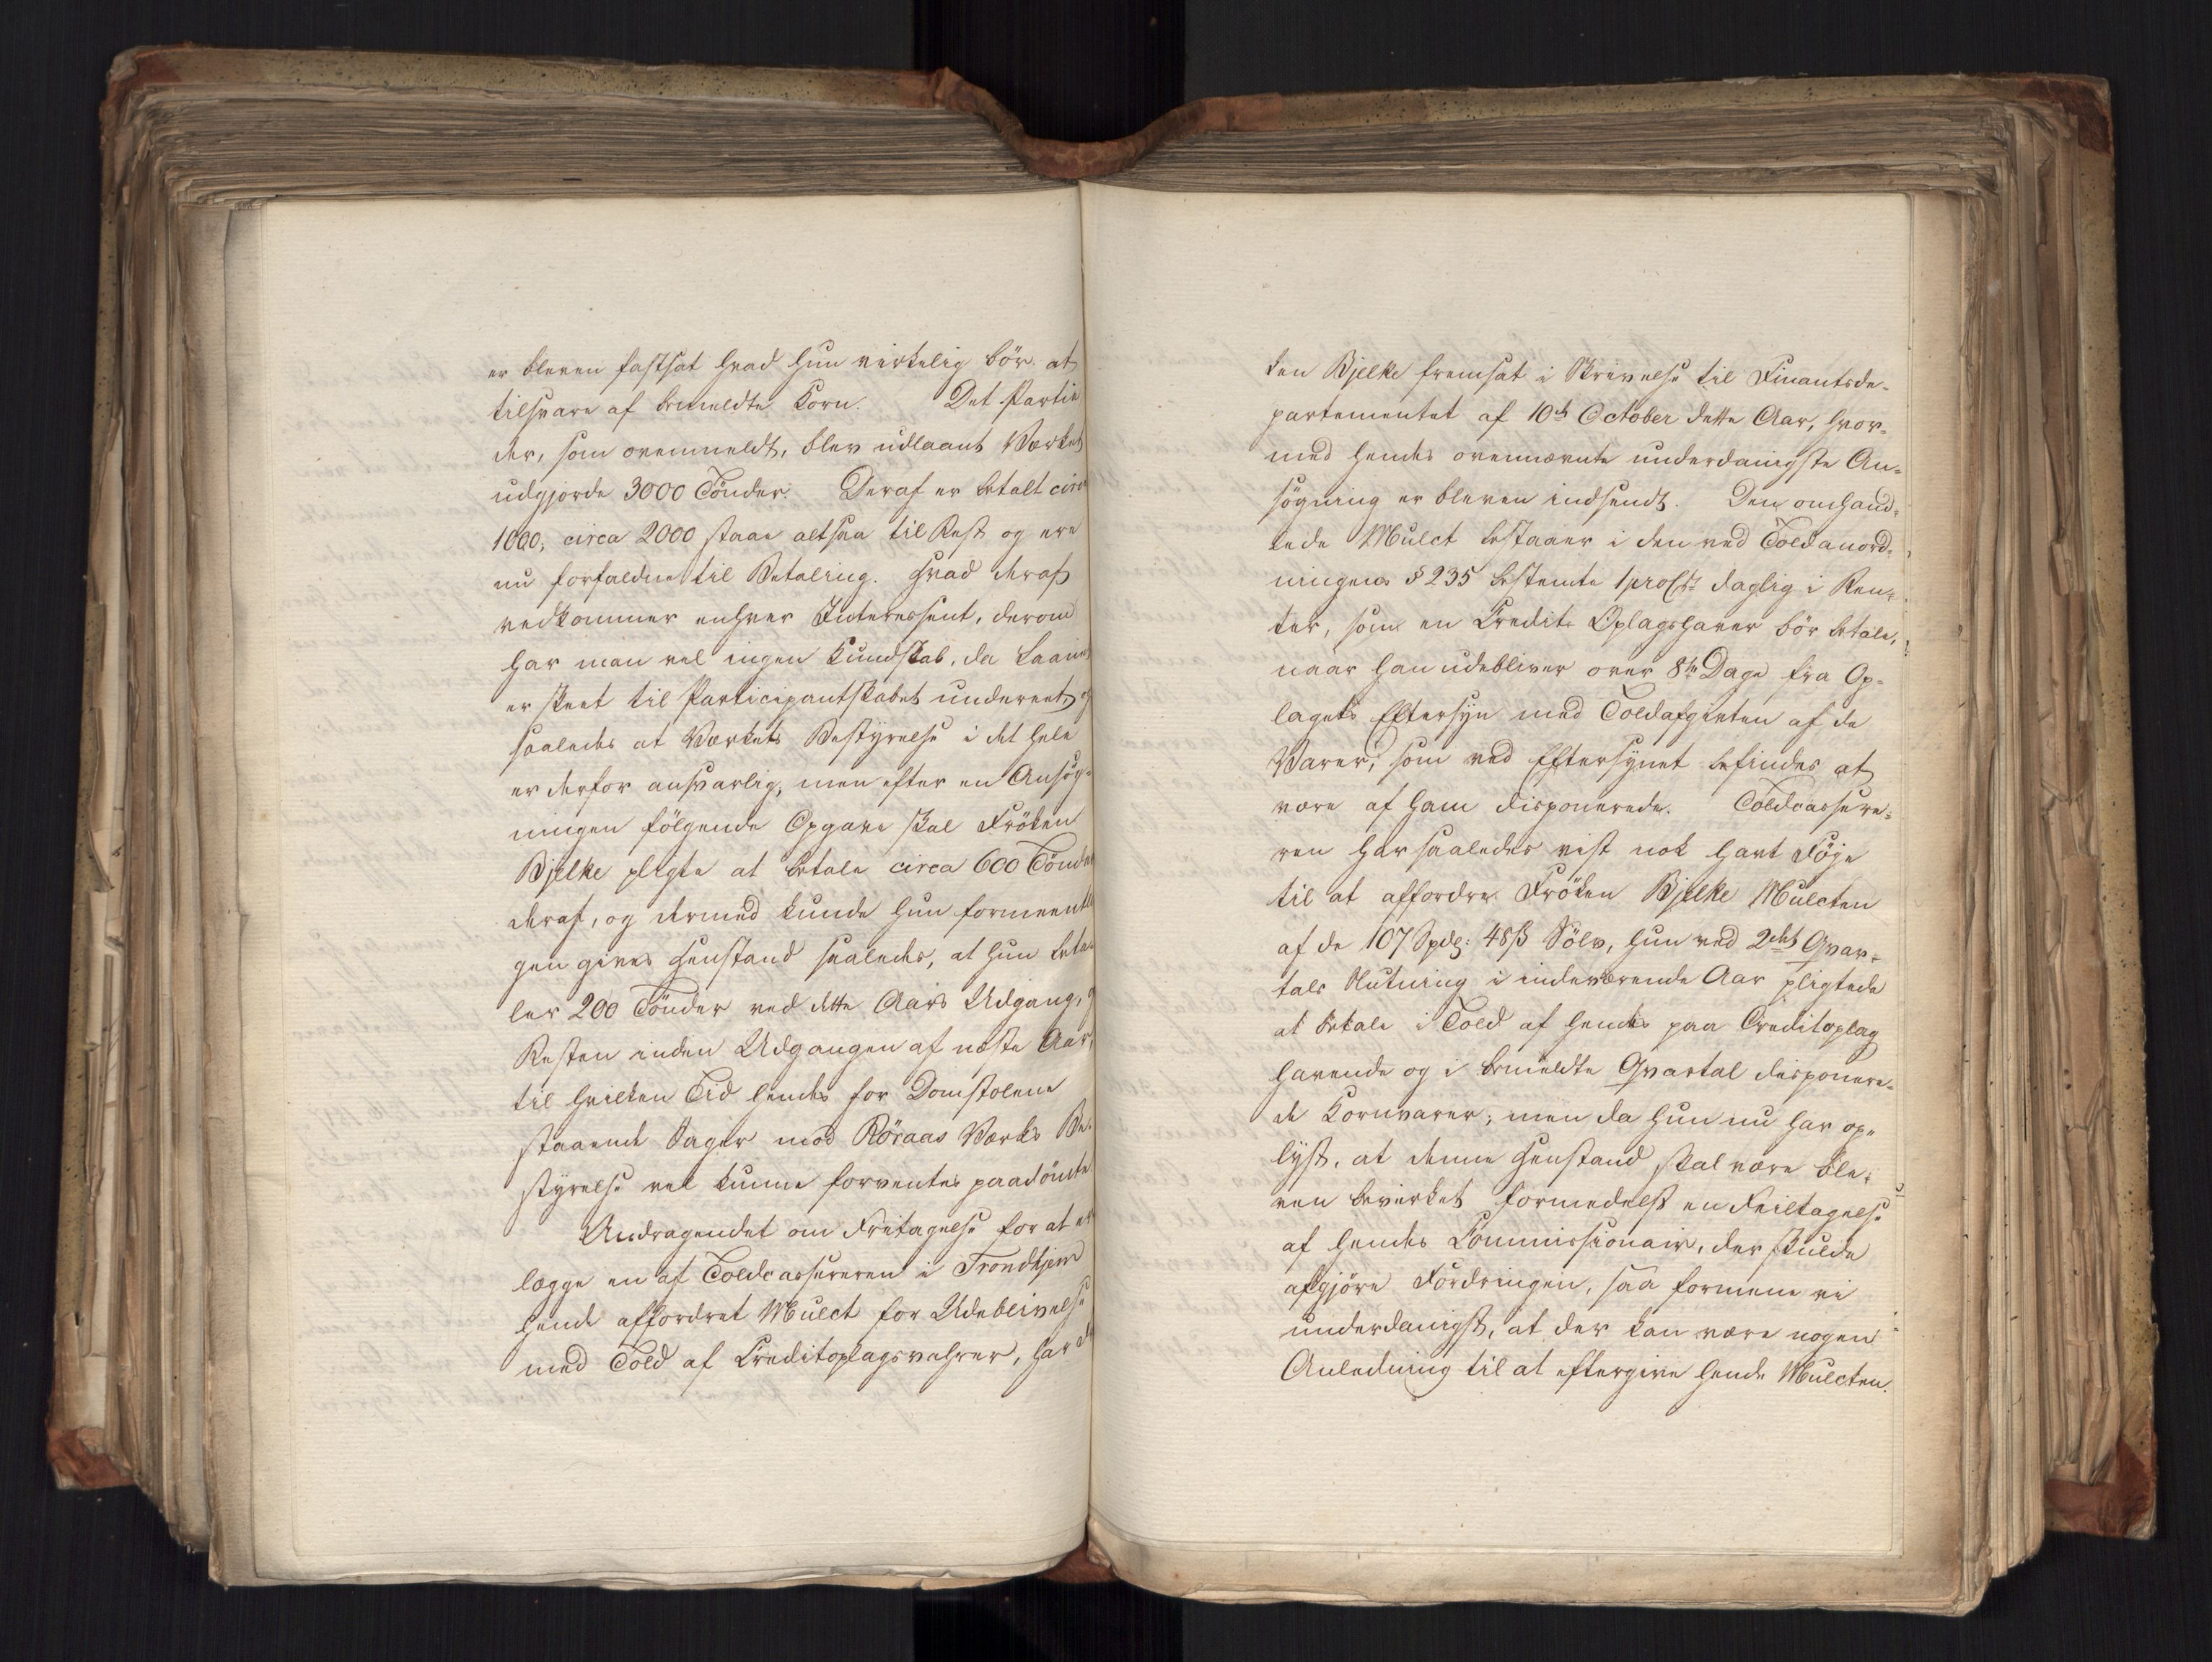 er bleven fastsat hvad hun virkelig bör at
tilsvare af bemeldte Korn. Det Partie
der, som ovenmeldt, blev udlaant Værket
udgjorde 3000 Tönder. Deraf er betalt circa
1000, circa 2000 staae altsaa til Rest og ere
nu forfaldne til Betaling. Hvad deraf
vedkommer enhver Interessent, derom
har man vel ingen Kundskab, da Laanet
er skeet til Participantskabet undereet, og
saaledes at Værkets Bestyrelse i det Hele
er derfor ansvarlig, men efter en Ansög-
ningen fölgende Opgave skal Fröken
Bjelke pligte at betale circa 600 Tönder
deraf, og dermed kunde hun formeentli
gen gives Henstand saaledes, at hun beta-
ler 200 Tönder ved dette Aars Udgang, og
Resten inden Udgangen af næste Aar,
til hvilken Tid hendes for Domstolene
staaende Sager mod Röraas Værks Be-
styrelse vel kunne forventes paadömte.
Andragendet om Fritagelse for at er
lægge en af Toldcassereren i Trondhjem
hende affordret Mulct for Udeblivelse
med Told af Creditoplagsvahrer, har
ken Bjelke fremsat i Skrivelse til Finantsde-
partementet af 10de October dette Aar, hvor-
med hendes ovennævnte underdanigste An-
sögning er bleven indsendt. Den omhand-
lede Mulct bestaaer i den ved Toldanord-
ningens § 235 bestemte 1 proCt daglig i Ren-
ter, som en Credit-Oplagshaver bör betale,
naar han udebliver over 8te Dage fra Op-
lagets Eftersyn med Toldafgivten af de
Varer, som ved Eftersynet befindes at
være af ham disponerede. Toldcassere-
ren har saaledes vist nok havt Föje
til at affordre Fröken Bjelke Mulcten
af de 107 Spdlr 48 ß Sölv, hun ved 2det Qvar-
tals Slutning i indeværende Aar pligtede
at betale i Told af hendes paa Creditoplag
havende og i bemeldte Qvartal disponere-
de Kornvarer; men da hun nu har op-
lyst, at denne Henstand skal være ble-
ven bevirket formedelst en Feiltagelse
af hendes Commissionair, der skulde
afgjöre Fordringen, saa formene vi
underdanigst, at der kan være nogen
Anledning til at eftergive hende Mulcten.